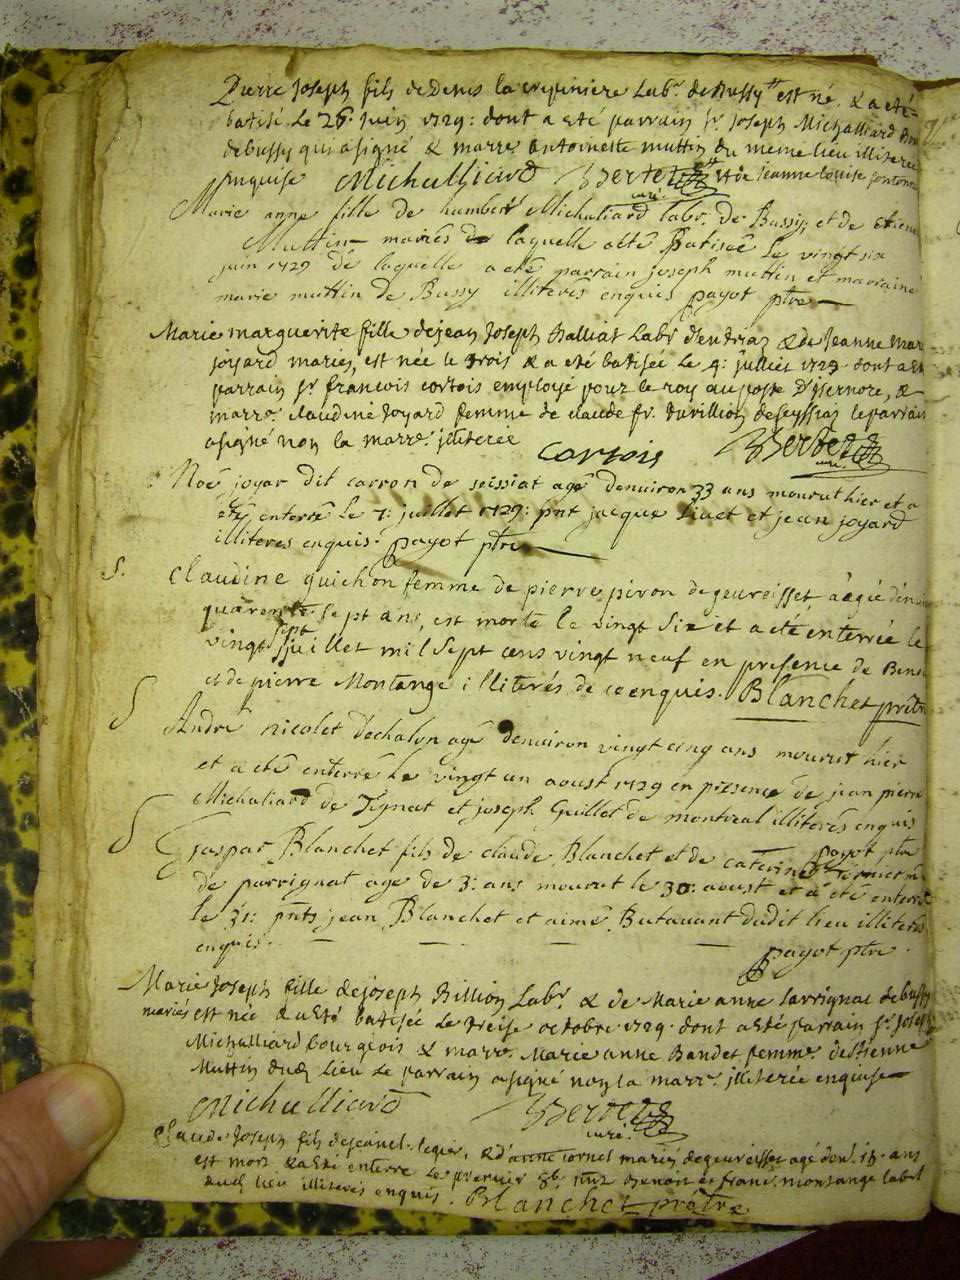 Pierre Joseph fils de Denis la crepiniere Labr. de Bussy est né, & a eté
batisé Le 26. Juin 1729: dont a eté parrain Sr. Joseph Michalliard
de bussy qui a signé & marre. antoinette muttin du meme lieu illiterée
enquise Michalliard Berdet curé. & de jeanne Louise
Marie anne fille de humbert Michaliard labr. de Bussy, et de
Muttin mariés de laquelle a été Batisée Le vingt six
juin 1729 de laquelle a eté parrain joseph muttin et marraine
marie muttin de Bussy illiterés enquis payot ptre
Marie marguerite fille de jean Joseph Balliat Labr. & de Jeanne mar
joyard mariés, est née le trois & a eté batisée Le 4: juillet 1729 dont a eté
parrain Sr. francois cortois employé pour le roy au poste D'isernore, &
marre. claudine Joyard femme de claude fr. de seyssia le parrain
a signé non la marre. illiterée
Cortois Berdet curé.
Noé joyar dit carron de seissiat agé denuiron 33 ans mourut hier et a
été enterré Le 7: juillet 1729: pnt jacque et jean joyard
illiteres enquis. payot ptre
S. Claudine guichon femme de pierre piron de geureisset, âagée d'en
quarente sept ans, est morte le vingt Six et a eté enterrée le
vingt sept juillet mil Sept cens vingt neuf en presence de Beno
et de pierre Montange illiterés de ce enquis. Blanchet prêtre
S André nicolet d'echalon agé denuiron vingt cinq ans mourut hier
et a eté enterré Le vingt un aoust 1729 en presence de jean pierre
Michaliard de Tignat et joseph Guillet de montreal illiterés enquis
payot ptre
S Gaspar Blanchet fils de claude Blanchet et de caterine
de parrignat age de 3: ans mourut le 30: aoust et a été enterré
le 31: pnts jean Blanchet et aimé Butauant dudit lieu illiterés
enquis.
payot ptre.
Marie Joseph fille de joseph Billion Labr. & de Marie anne Sarrignac de bussy
mariés est née & a Eté batisée Le treise octobre 1729. dont a eté parrain Sr. Joseph
Michalliard bourgeois & marre. Marie anne Bandet femme d'etienne
Muttin dud. Lieu Le parrain a signé non la marre. illiterée enquise
Michalliard Berdet curé.
Claude Joseph fils de & d'anne cornel mariés de geureisset agé denv. 18. ans
est mort & a Eté enterre Le premier 8b. pntz Benoit & franc. montange Labrs.
dud. lieu illiterés enquis. Blanchet prêtre